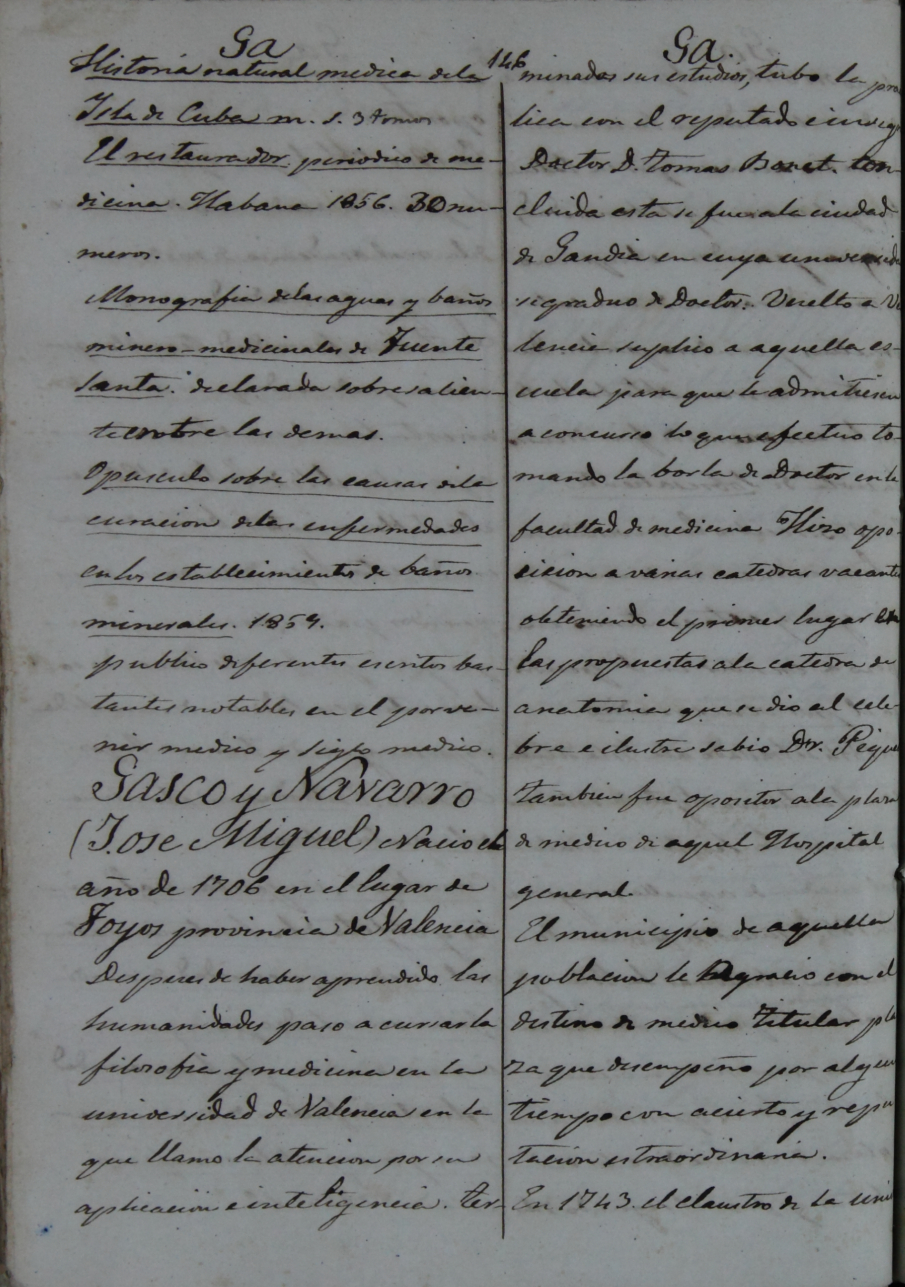 Ga
146
Historia natural medica de la
Isla de Cuba m. s. 3 tomos
El restaurador periodico de me-
dicina. Habana 1856. 30 nu-
meros.
Monografia delas aguas y baños
minero-medicinales de Fuente
Santa. declarada sobresalien-
te entre las demas.
Opusculo sobre las causas dela
curacion delas enfermedades
en los establecimientos de baños
minerales. 1859.
publico diferentes escritos bas-
tantes notables en el porve-
nir medico y siglo medico.
Gasco y Navarro
(Jose Miguel) Nacio el
año de 1706 en el lugar de
Foyos provincia de Valencia
Despues de haber aprendido las
humanidades paso a cursar la
filosofia y medicina en la
universidad de Valencia en la
que llamo la atencion por su
aplicacion e inteligencia. ter-
Ga.
minados sus estudios, tubo la pra
tica con el reputado e
Doctor D. Tomas Bonet. con-
cluida esta se fue a la ciudad
de Gandia en cuya universida
se graduo de Doctor. Vuelto a Va
lencia suplico a aquella es-
cuela para que le admitiesen
a concurso lo que efectuo to-
mando la borla de Doctor en la
facultad de medicina Hizo opo-
sicion a varias catedras vacante
obteniendo el primer lugar en
las propuestas a la catedra de
anatomia que se dio al cele-
bre e ilustre sabio Dr. Pique
tambien fue opositor a la plaza
de medico de aquel Hospital
general.
El municipio de aquella
poblacion le agracio con el
distino de medico titular pla
za que desempeño por algun
tiempo con acierto y repu
tacion estraordinaria.
En 1743. el claustro de la uni